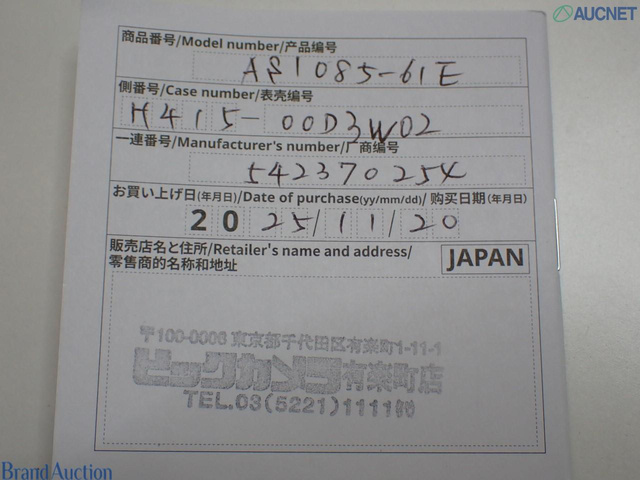 AUCNET
商品番号/Model number/产品编号
AS1085-61E
側番号/Case number/表壳编号
H415-00D3W02
一連番号/Manufacturer's number/厂商编号
542370254
お買い上げ日(年月日)/Date of purchase(yy/mm/dd)/购买日期(年月日)
2025/11/20
販売店名と住所/Retailer's name and address/
零售商的名称和地址
JAPAN
〒100-0006 東京都千代田区有楽町1-11-1
ビックカメラ有楽町店
TEL.03(5221)1111㈹
Brand Auction